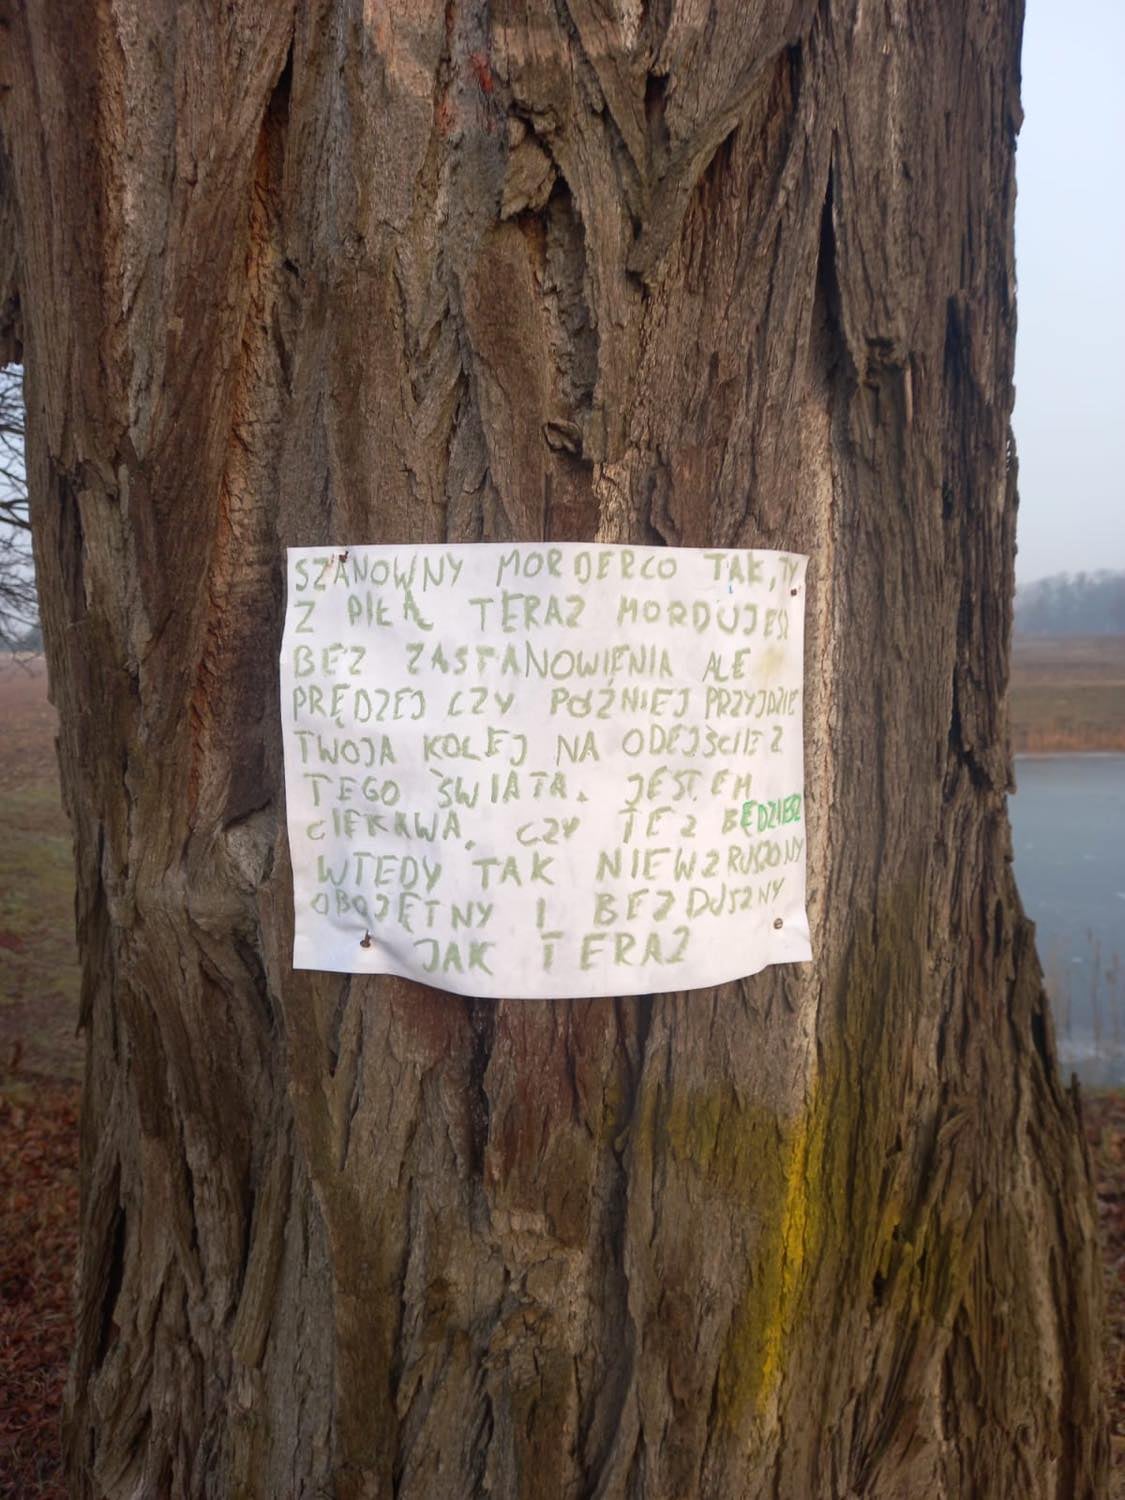 SZANOWNY MORDERCO TAK, TY
Z PIŁĄ TERAZ MORDUJESZ
BEZ ZASTANOWIENIA ALE
PRĘDZEJ CZY PÓŹNIEJ PRZYJDZIE
TWOJA KOLEJ NA ODEJŚCIE Z
TEGO ŚWIATA. JESTEM
CIEKAWA, CZY TEZ BĘDZIESZ
WTEDY TAK NIEWZRUSZONY
OBOJĘTNY I BEZDUSZNY
JAK TERAZ